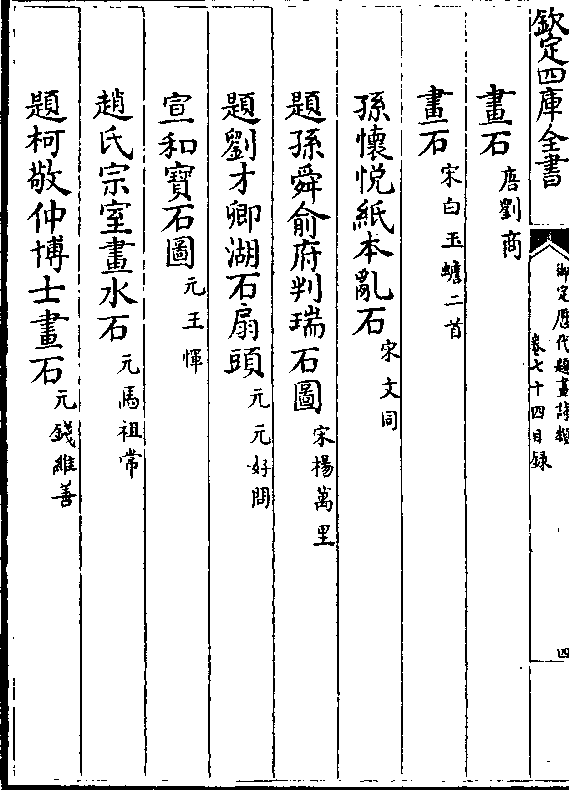 欽定四庫全書
御定歷代題畫詩類
卷七十四目錄
四
畫石 唐劉商
畫石 宋白玉蟾二首
孫懷悅紙本亂石 宋文同
題孫舜俞府判瑞石圖 宋楊萬里
題劉才卿湖石扇頭 元元好問
宣和寶石圖 元王惲
趙氏宗室畫水石 元馬祖常
題柯敬仲博士畫石 元錢維善